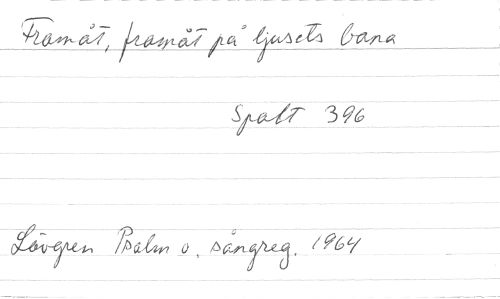 Framåt, framåt på ljusets bana
Spalt 396
Lövgren Psalm o. sångreg. 1964